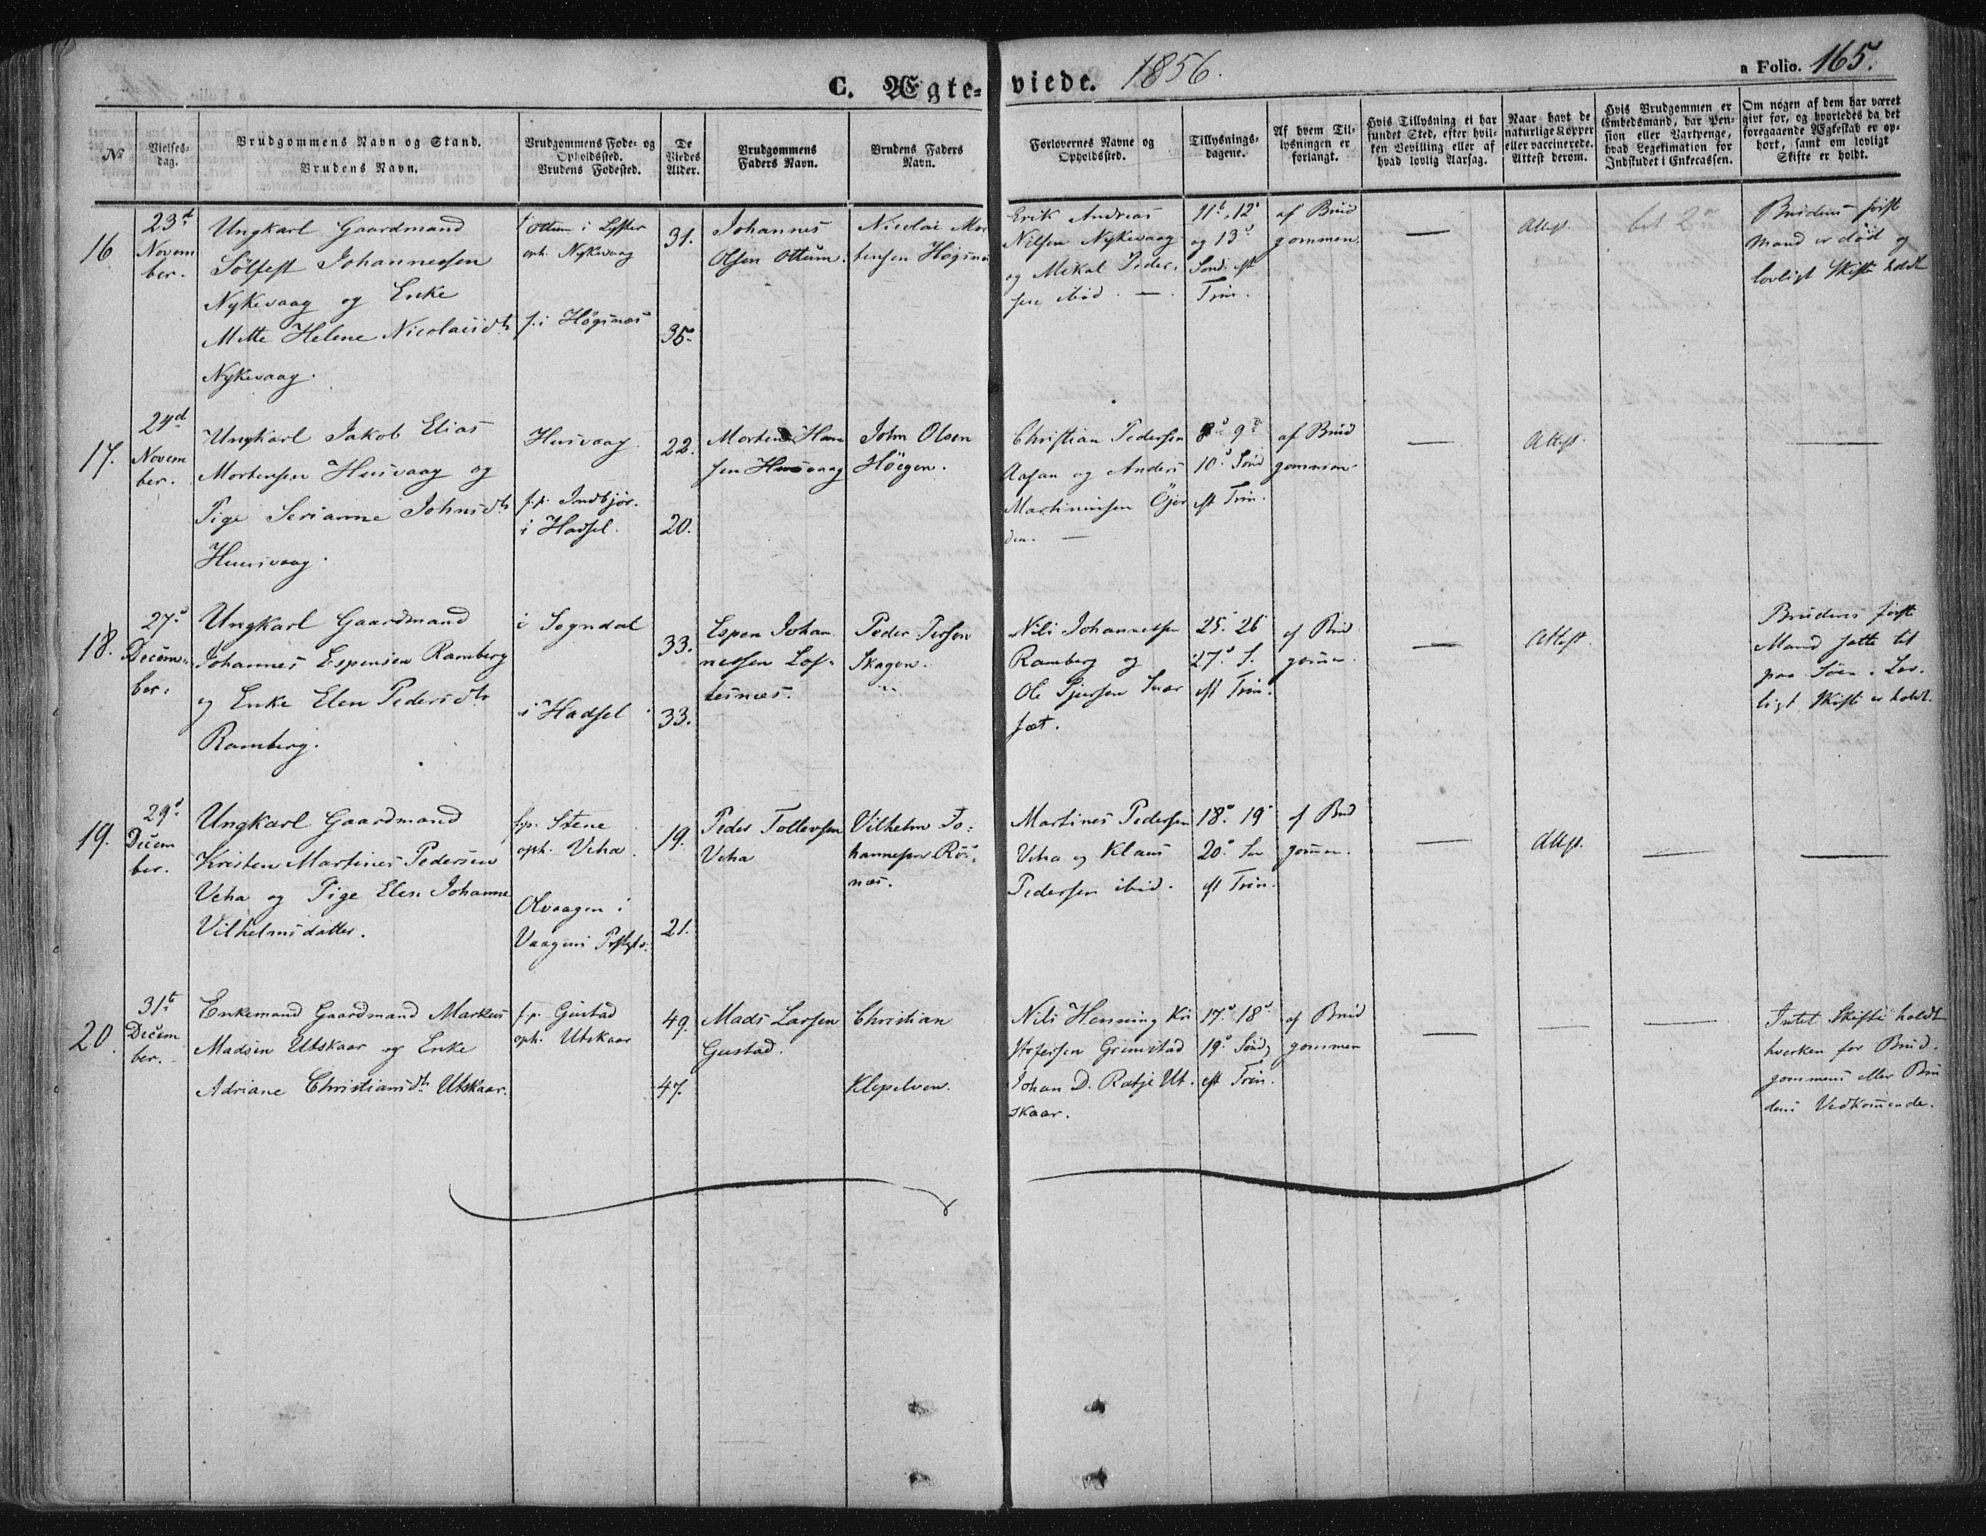 C. Ægte-viede. 1856.
a Folio. 165.
No
Vielses-
dag.
Brudgommens Navn og Stand.
Brudens Navn.
Brudgommens Føde- og
Opholdssted.
Brudens Fødested.
De
Viedes
Alder.
Brudgommens
Faders Navn.
Brudens Faders
Navn.
Forlovernes Navne og
Opholdssted.
Tillysnings-
dagene.
Af hvem Til-
lysningen er
forlangt.
Hvis Tillysning ei har
fundet Sted, efter hvil-
ken Bevilling eller af
hvad lovlig Aarsag.
Naar havt de
naturlige Kopper
eller vaccinerede.
Attest derom.
Hvis Brudgommen er
Embedsmand, har Pen-
sion eller Vartpenge,
hvad Legitimation for
Indskudet i Enkecassen.
Om nogen af dem har været
givt for, og hvorledes da det
foregaaende Ægteskab er op-
hørt, samt om lovligt
Skifte er holdt.
16
23d
Novem
ber.
Ungkarl Gaardmand
Sølfest Johannessen
Nykevaag og Enke
Mette Helene Nicolaisdtr
Nykevaag.
f. Ottum i Lyster
oph. Nykevaag
f. i Høgsnæs
31.
35.
Johannes
Olsen Ottum.
Nicolai Mor
tensen Høgsnæs
Erik Andreas
Nilsen Nykevaag
og Mekal Peder-
sen ibid. —
11t, 12'
og 13d
Sønd. eft
Trin.
af Brud
gommen.
—
Attest.
bet 2
Brudens først
Mand er død og
lovligt Skifte holdt
17.
24d
Novem
ber.
Ungkarl Jakob Elias
Mortensen Husvaag og
Pige Serianne Johnsdtr
Huusvaag.
Husvaag.
f. p. Indbjør.
i Hadsel.
22.
20.
Morten Han
sen Husvaag
John Olsen
Høegen.
Christian Pedersen
Aasan og Anders
Martinussen Gjer
den. —
8d 9d
10d Sønd
eft Trin.
af Brud
gommen.
—
Attest.
—
18.
27d
Decem-
ber.
Ungkarl Gaardmand
Johannes Espensen Ramberg
og Enke Elen Pedersdtr
Ramberg.
i Sogndal
i Hadsel
33.
33.
Espen Johan
nessen Lof-
tesnæs.
Peder Persen
Skagen.
Nils Johannessen
Ramberg og
Ole Sjursen Snar
sæt.
25. 26
27d S.
eft Trin.
af Brud
gommen.
—
Attest.
Brudens første
Mand satte til
paa Søen. Lov-
ligt Skifte er holdt.
19.
29d
Decem
ber.
Ungkarl Gaardmand
Kristen Martines Pedersen
Veha og Pige Elen Johanne
Vilhelmsdatter.
f. p. Stene
oph. Veha.
Olvaagen i
Vaagens Prstgd.
19.
21.
Peder Tollevsen
Veha
Vilhelm Jo-
hannesen Røs-
næs.
Martines Pedersen
Veha og Klaus
Pedersen ibid.
18d 19d
20d Søn
eft Trin.
af Brud
gommen.
—
Attest.
—
—
20.
31t
Decem
ber.
Enkemand Gaardmand Markus
Madsen Utskaar og Enke
Adriane Christiansdtr Utskaar.
f. p. Gustad
oph. Utskaar
49.
47.
Mads Larsen
Gustad.
Christian
Klepelven.
Nils Henning Kri
stofersen Grimstad
Johan D. Ratje Ut.
skaar.
17d 18d
19d Sønd
eft Trin.
af Brud
gommen
—
—
—
Intet Skifte holdt
hverken for Brud-
gommens eller Bru
dens Vedkommende.